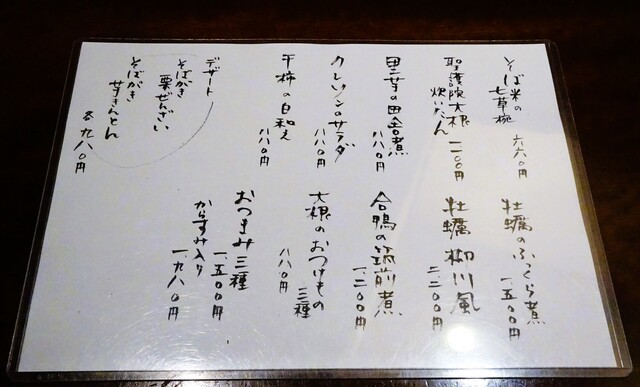 そば米の
七草椀 六六〇円
聖護院大根
炊いたん 一.一〇〇円
里芋の田舎煮
八八〇円
クレソンのサラダ
八八〇円
干柿の白和え
八八〇円
デザート
そばがき
栗ぜんざい
そばがき
芋きんとん
各九八〇円
牡蠣のふっくら煮
一.五〇〇円
牡蠣 柳川風
二.二〇〇円
合鴨の筑前煮
一.二〇〇円
大根のおつけもの
三種
八八〇円
おつまみ三種
一.五〇〇円
からすみ入り
一.九八〇円